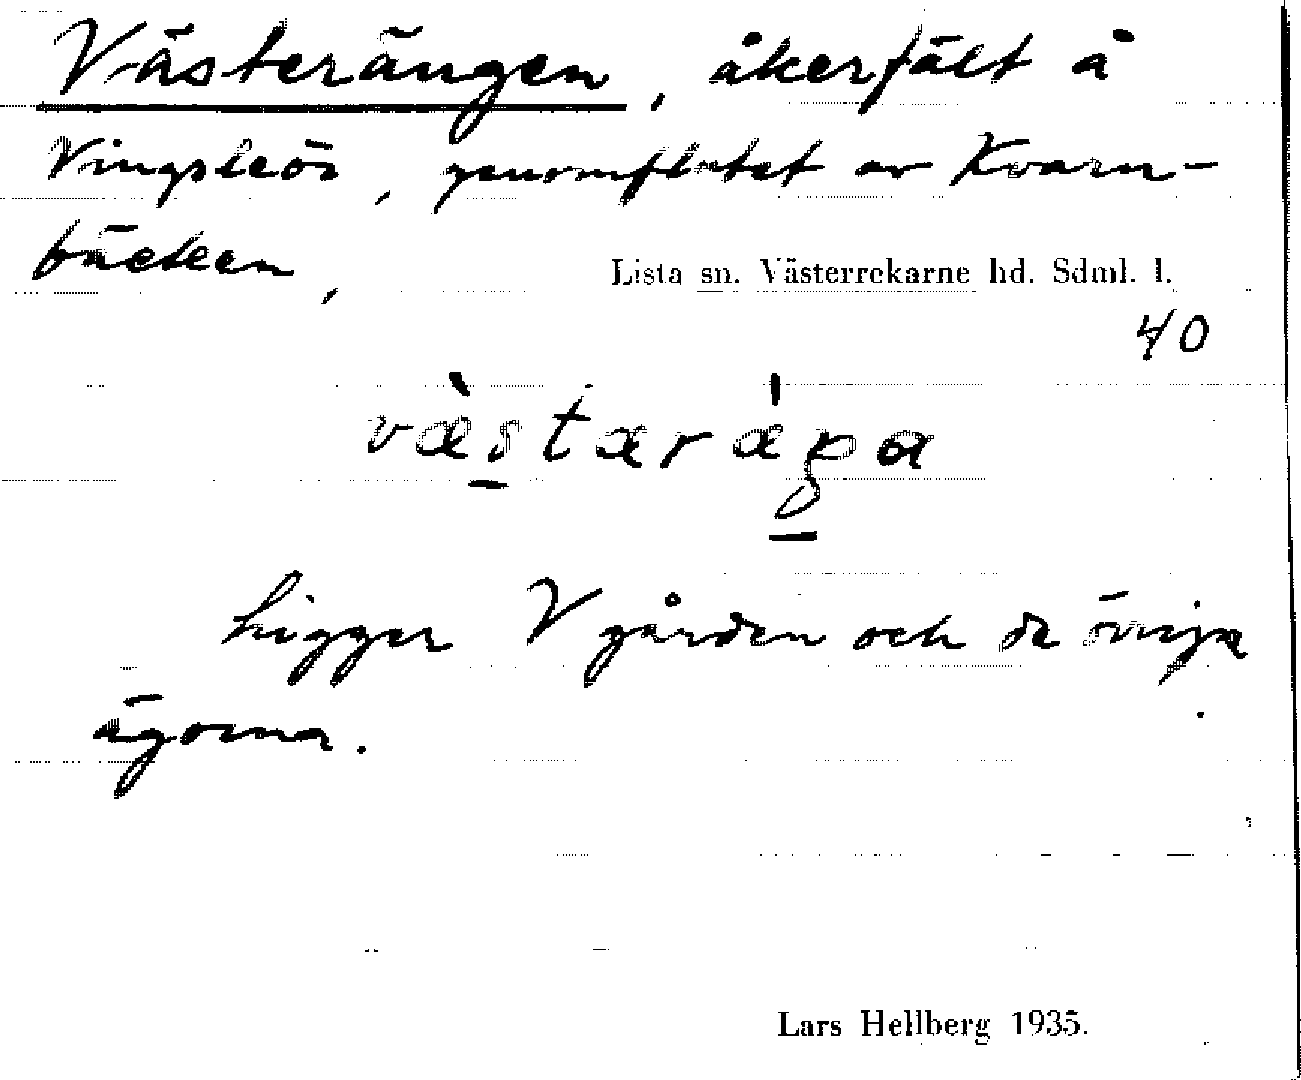 Västerängen, åkerfält å
Vingsleör, genomflutet av Kvarn-
bäcken,
Lista sn. Västerrekarne hd. Sdml. l.
40
Ligger V gården och de övriga
ägorna.
Lars Hellberg 1935.